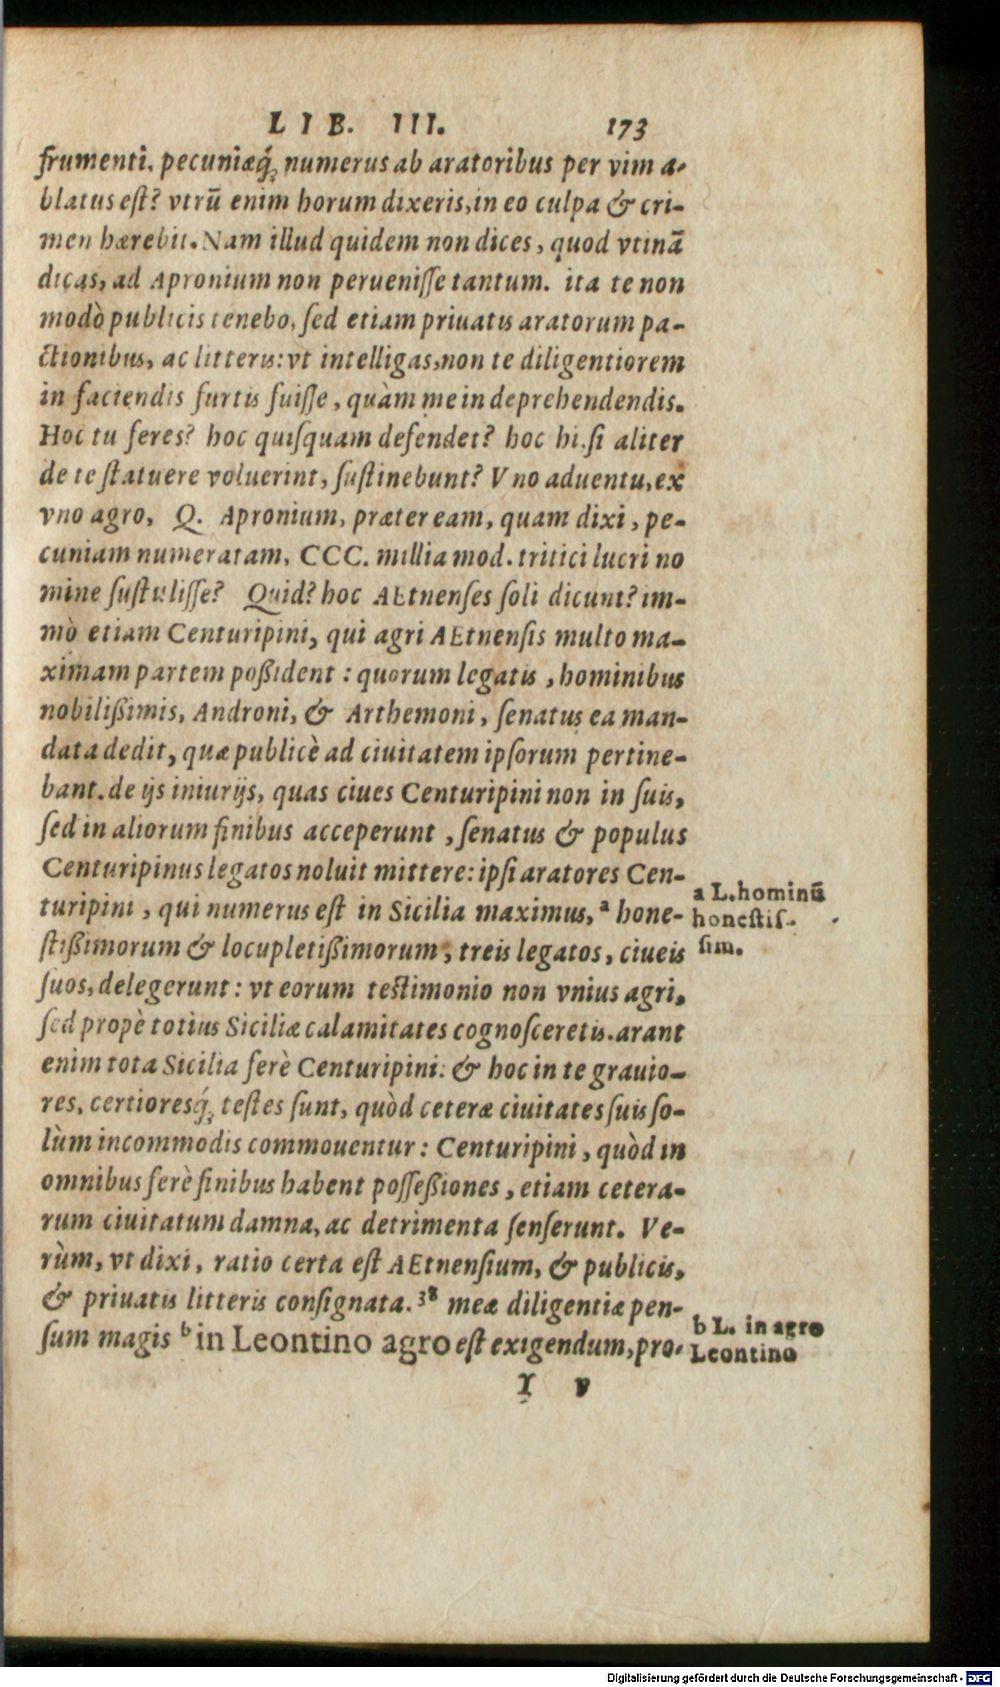 LIB. III. 173
frumenti, pecuniæq́; numerus ab aratoribus per vim a-
blatus est? vtrū enim horum dixeris, in eo culpa & cri-
men hærebit. Nam illud quidem non dices, quod vtinā
dicas, ad Apronium non peruenisse tantum. ita te non
modò publicis tenebo, sed etiam priuatis aratorum pa-
ctionibus, ac litteris: vt intelligas, non te diligentiorem
in faciendis furtis fuisse, quàm me in deprehendendis.
Hoc tu feres? hoc quisquam defendet? hoc hi, si aliter
de te statuere voluerint, sustinebunt? Vno aduentu, ex
vno agro, Q. Apronium, præter eam, quam dixi, pe-
cuniam numeratam, CCC. millia mod. tritici lucri no
mine sustulisse? Quid? hoc AEtnenses soli dicunt? im-
mò etiam Centuripini, qui agri AEtnensis multo ma-
ximam partem possident: quorum legatis, hominibus
nobilissimis, Androni, & Arthemoni, senatus ea man-
data dedit, quæ publicè ad ciuitatem ipsorum pertine-
bant. de ijs iniurijs, quas ciues Centuripini non in suis,
sed in aliorum finibus acceperunt, senatus & populus
Centuripinus legatos noluit mittere: ipsi aratores Cen-
turipini, qui numerus est in Sicilia maximus, ᵃ hone-
stissimorum & locupletissimorum, treis legatos, ciueis
suos, delegerunt: vt eorum testimonio non vnius agri,
sed propè totius Siciliæ calamitates cognosceretis. arant
enim tota Sicilia ferè Centuripini: & hoc in te grauio-
res, certioresq́; testes sunt, quòd ceteræ ciuitates suis so-
lùm incommodis commouentur: Centuripini, quòd in
omnibus ferè finibus habent possessiones, etiam cetera-
rum ciuitatum damna, ac detrimenta senserunt. Ve-
rùm, vt dixi, ratio certa est AEtnensium, & publicis,
& priuatis litteris consignata. ³⁸ meæ diligentiæ pen-
sum magis ᵇ in Leontino agro est exigendum, pro-
I v
a L. hominū
honestis-
sim.
b L. in agro
Leontino
Digitalisierung gefördert durch die Deutsche Forschungsgemeinschaft - DFG